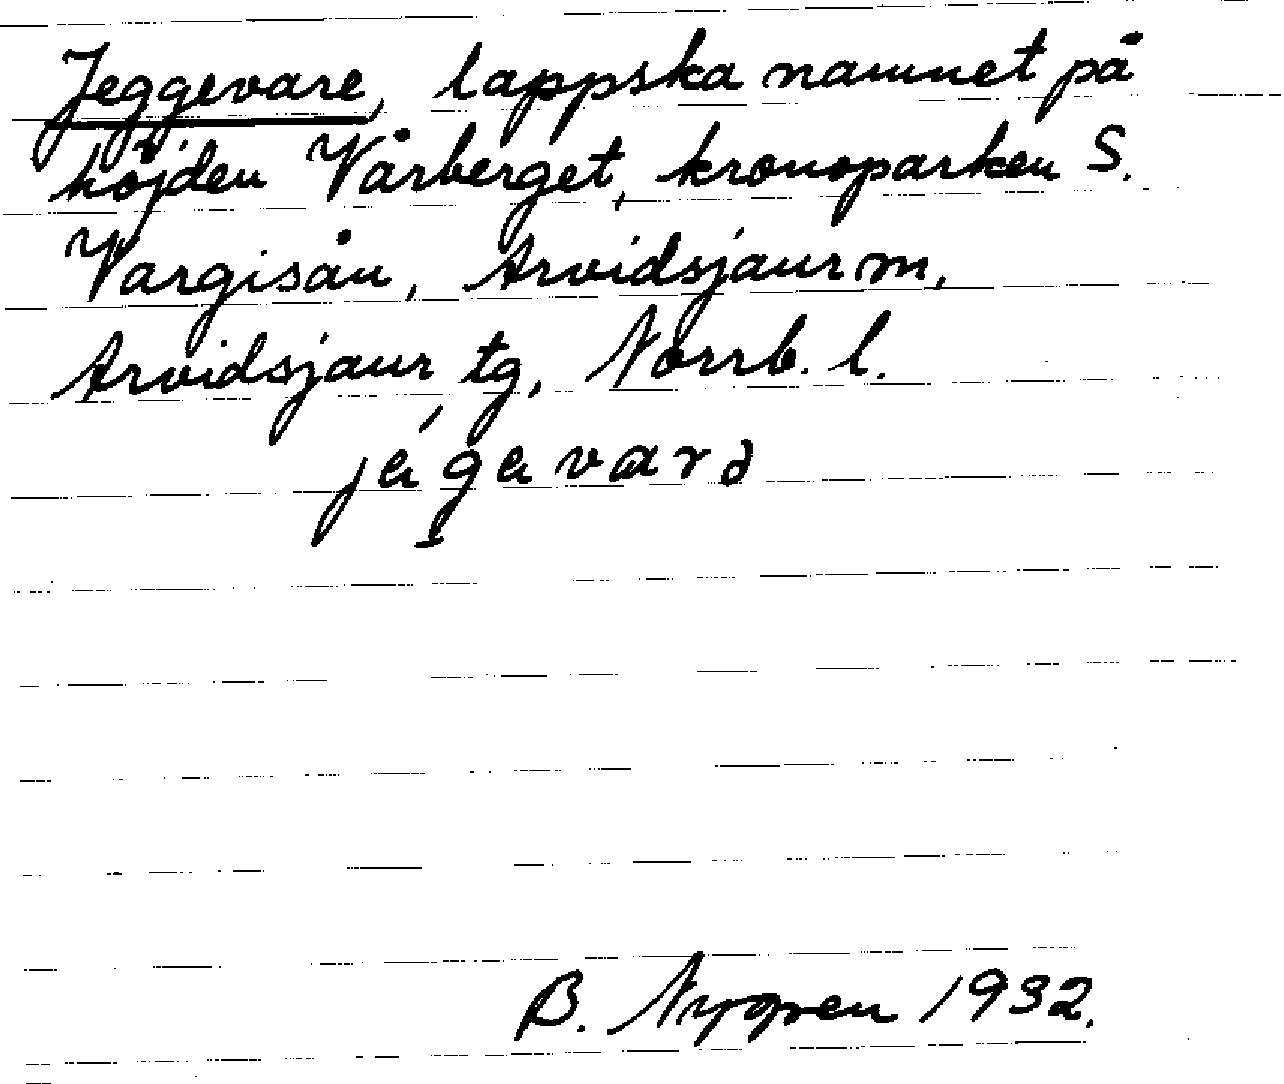 Jeggevare, lappska namnet på
höjden Vårberget, kronoparken S.
Vargisån, Arvidsjaur m,
Arvidsjaur tg, Norrb. l.
B. Nygren 1932.